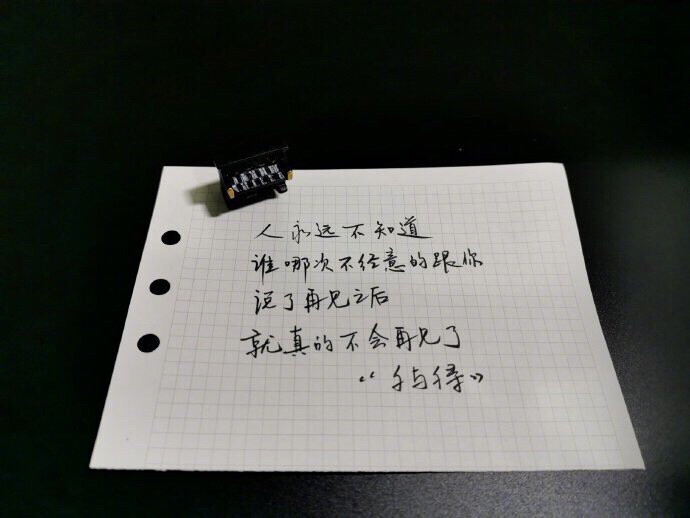 人永远不知道
谁哪次不经意的跟你
说了再见之后
就真的不会再见了
“千与千寻”